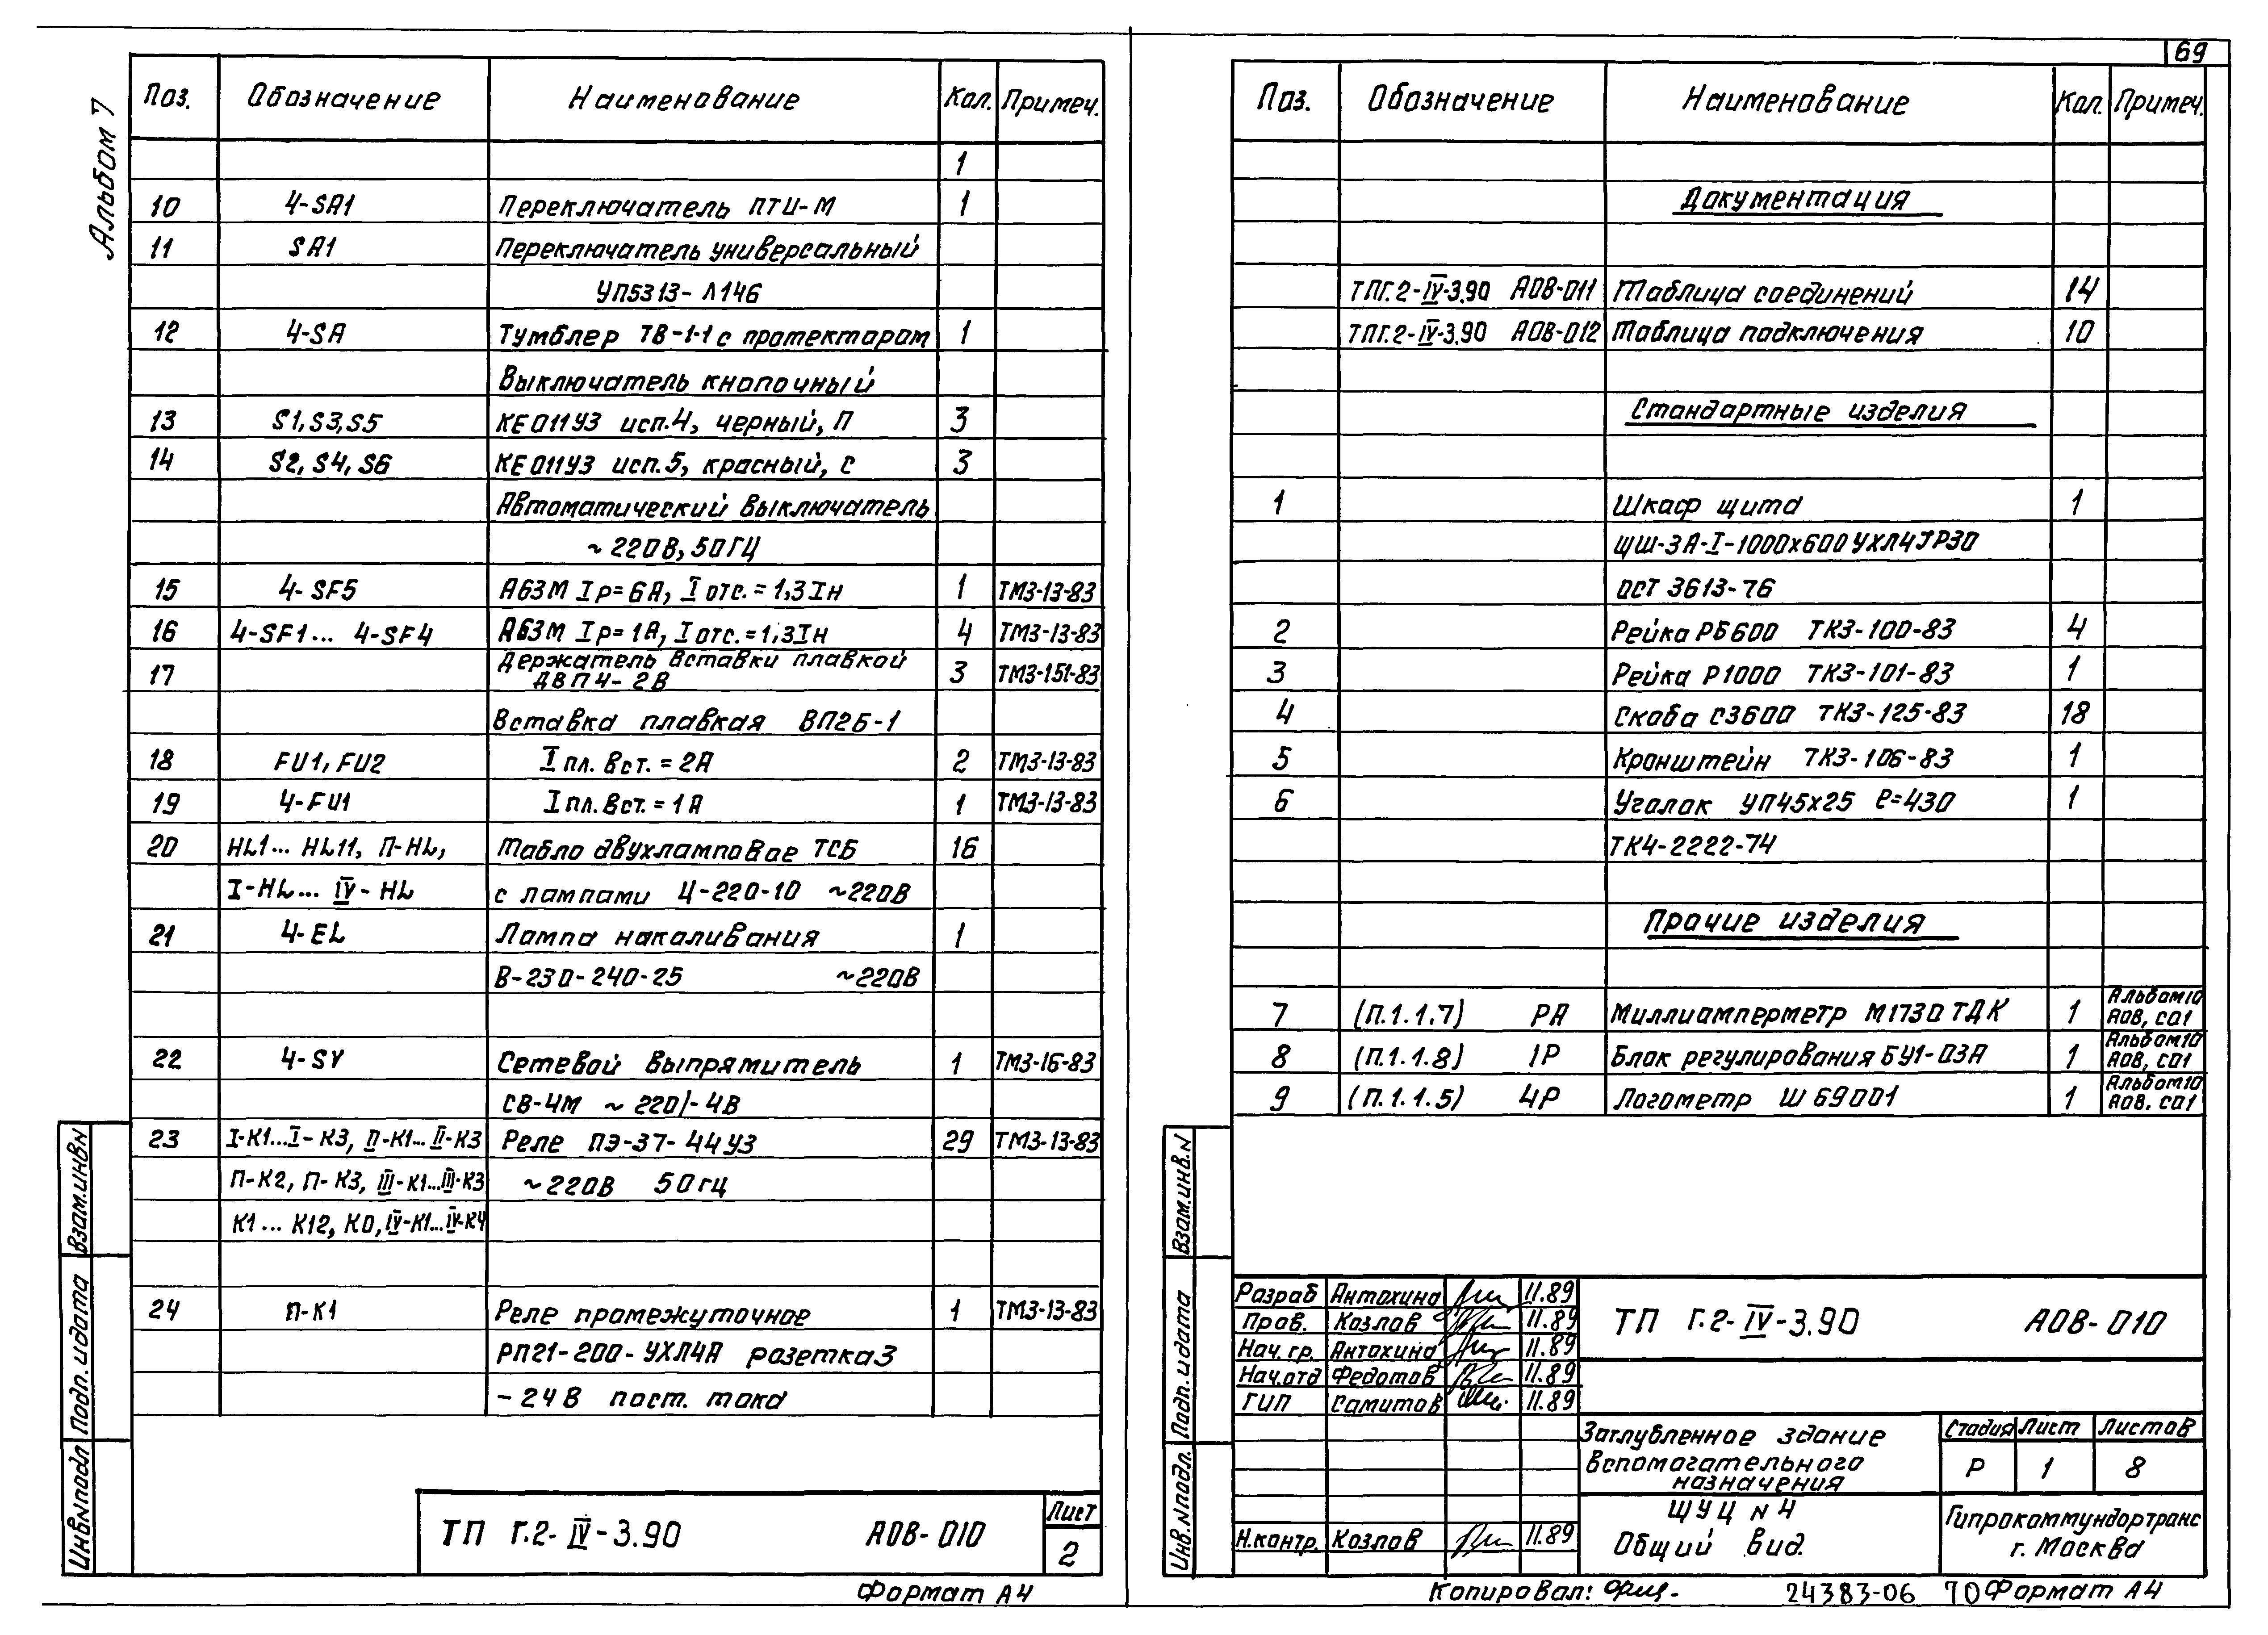 69
Альбом 7
Поз. Обозначение Наименование Кол. Примеч.
1
10 4-SA1 Переключатель ПТИ-М 1
11 SA1 Переключатель универсальный
УП5313-Л146
12 4-SA Тумблер ТВ-1-1 с протектором 1
Выключатель кнопочный
13 S1, S3, S5 КЕ011У3 исп.4, черный, П 3
14 S2, S4, S6 КЕ011У3 исп.5, красный, С 3
Автоматический выключатель
~220В, 50ГЦ
15 4-SF5 А63М Iр=6А, I отс.=1,3Iн 1 ТМ3-13-83
16 4-SF1... 4-SF4 А63М Iр=1А, I отс.=1,3Iн 4 ТМ3-13-83
17 Держатель вставки плавкой 3 ТМ3-151-83
ДВП4-2В
Вставка плавкая ВП2Б-1
18 FU1, FU2 I пл. вст.=2А 2 ТМ3-13-83
19 4-FU1 I пл. вст.=1А 1 ТМ3-13-83
20 HL1... HL11, П-HL, Табло двухламповое ТСБ 16
I-HL... IV-HL с лампами Ц-220-10 ~220В
21 4-EL Лампа накаливания 1
В-230-240-25 ~220В
22 4-SY Сетевой выпрямитель 1 ТМ3-16-83
СВ-4М ~220/-4В
23 I-К1...I-К3, II-К1...II-К3 Реле ПЭ-37-44У3 29 ТМ3-13-83
П-К2, П-К3, III-К1...III-К3 ~220В 50гц
К1...К12, К0, IV-К1...IV-К4
24 П-К1 Реле промежуточное 1 ТМ3-13-83
РП21-200-УХЛ4А розетка3
-24В пост. тока
Взам.инв.N
Подп. и дата
Инв.N подл
ТП Г.2-IV-3.90 АОВ-010
Лист
2
Формат А4
Поз. Обозначение Наименование Кол. Примеч.
Документация
ТПГ.2-IV-3.90 АОВ-011 Таблица соединений 14
ТПГ.2-IV-3.90 АОВ-012 Таблица подключения 10
Стандартные изделия
1 Шкаф щита 1
ЩШ-ЗА-I-1000х600УХЛ4IР30
ОСТ 3613-76
2 Рейка РБ600 ТК3-100-83 4
3 Рейка Р1000 ТК3-101-83 1
4 Скоба С3600 ТК3-125-83 18
5 Кронштейн ТК3-106-83 1
6 Уголок УП45х25 ℓ=430 1
ТК4-2222-74
Прочие изделия
7 (П.1.1.7) РА Миллиамперметр М1730ТДК 1 Альбом10 АОВ, СО1
8 (П.1.1.8) 1Р Блок регулирования БУ1-03А 1 Альбом10 АОВ, СО1
9 (П.1.1.5) 4Р Логометр Ш69001 1 Альбом10 АОВ, СО1
Взам.инв.N
Подп. и дата
Инв.N подл.
Разраб Антохина 11.89
Пров. Козлов 11.89
Нач.гр. Антохина 11.89
Нач.отд Федотов 11.89
ГИП Самитов 11.89
Н.контр. Козлов 11.89
ТП Г.2-IV-3.90 АОВ-010
Заглубленное здание
вспомагательного
назначения
Стадия Лист Листов
Р 1 8
ЩУЦ N 4
Общий вид.
Гипрокоммундортранс
г. Москва
Копировал: 24383-06 70 Формат А4